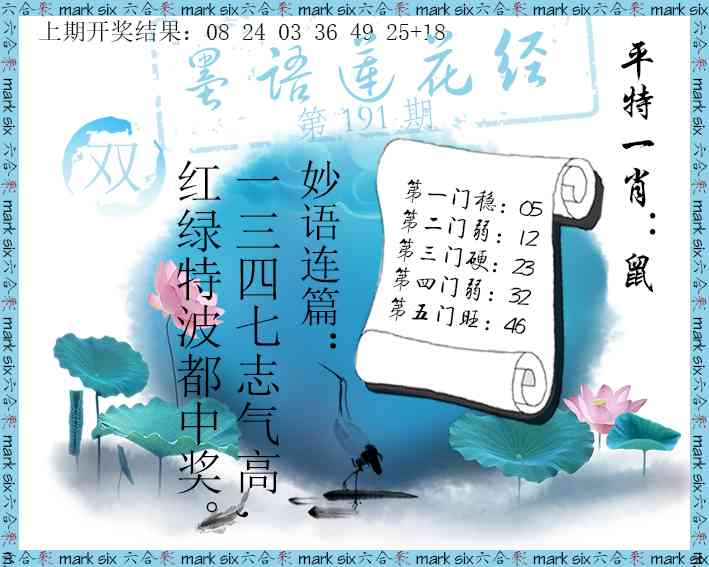 上期开奖结果：08 24 03 36 49 25+18
墨语莲花经
第191期
双
平特一肖：鼠
妙语连篇：
一三四七志气高，
红绿特波都中奖。
第一门稳：05
第二门弱：12
第三门硬：23
第四门弱：32
第五门旺：46
mark six 六合彩 mark six 六合彩 mark six 六合彩 mark six 六合彩 mark six 六合彩 mark six